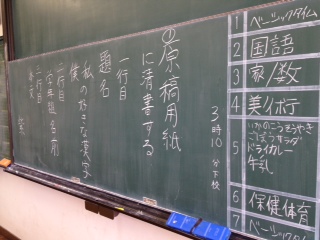 ①原稿用紙
に清書する
一行目
題名
私
僕の好きな漢字
二行目
学年題名前
三行目
本文
3時10分下校
1 ベーシックタイム
2 国語
3 家/教
4 美/術
5
ごぼうサラダ
ドライカレー
牛乳
6 保健体育
7 ベーシックタイム